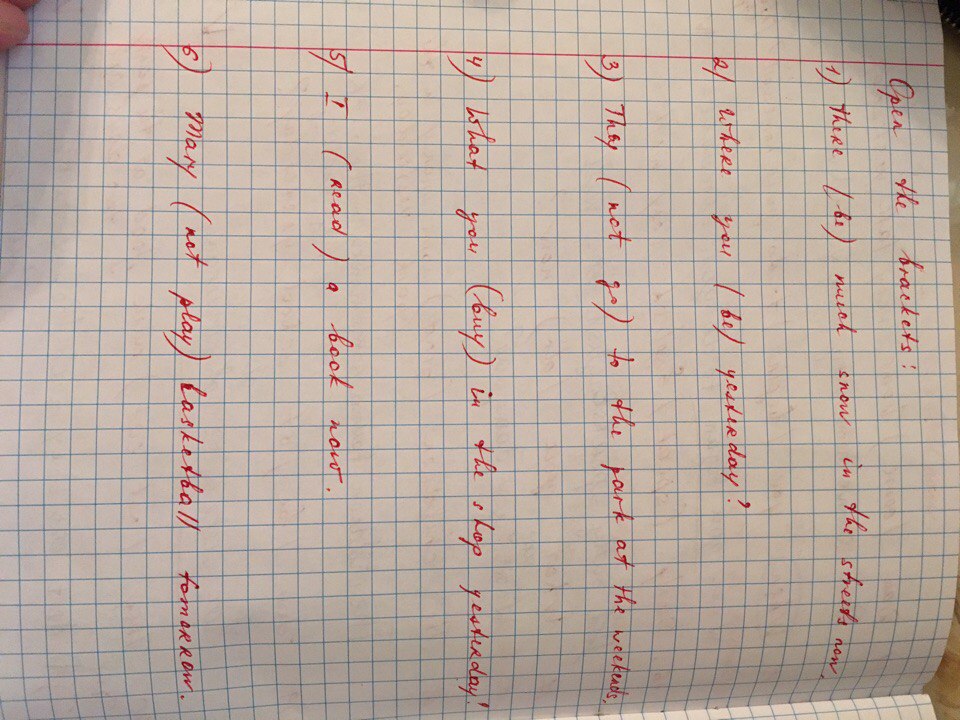 Open the brackets:
1) There (be) much snow in the streets now.
2) Where you (be) yesterday?
3) They (not go) to the park at the weekends.
4) What you (buy) in the shop yesterday?
5) I (read) a book now.
6) Mary (not play) basketball tomorrow.